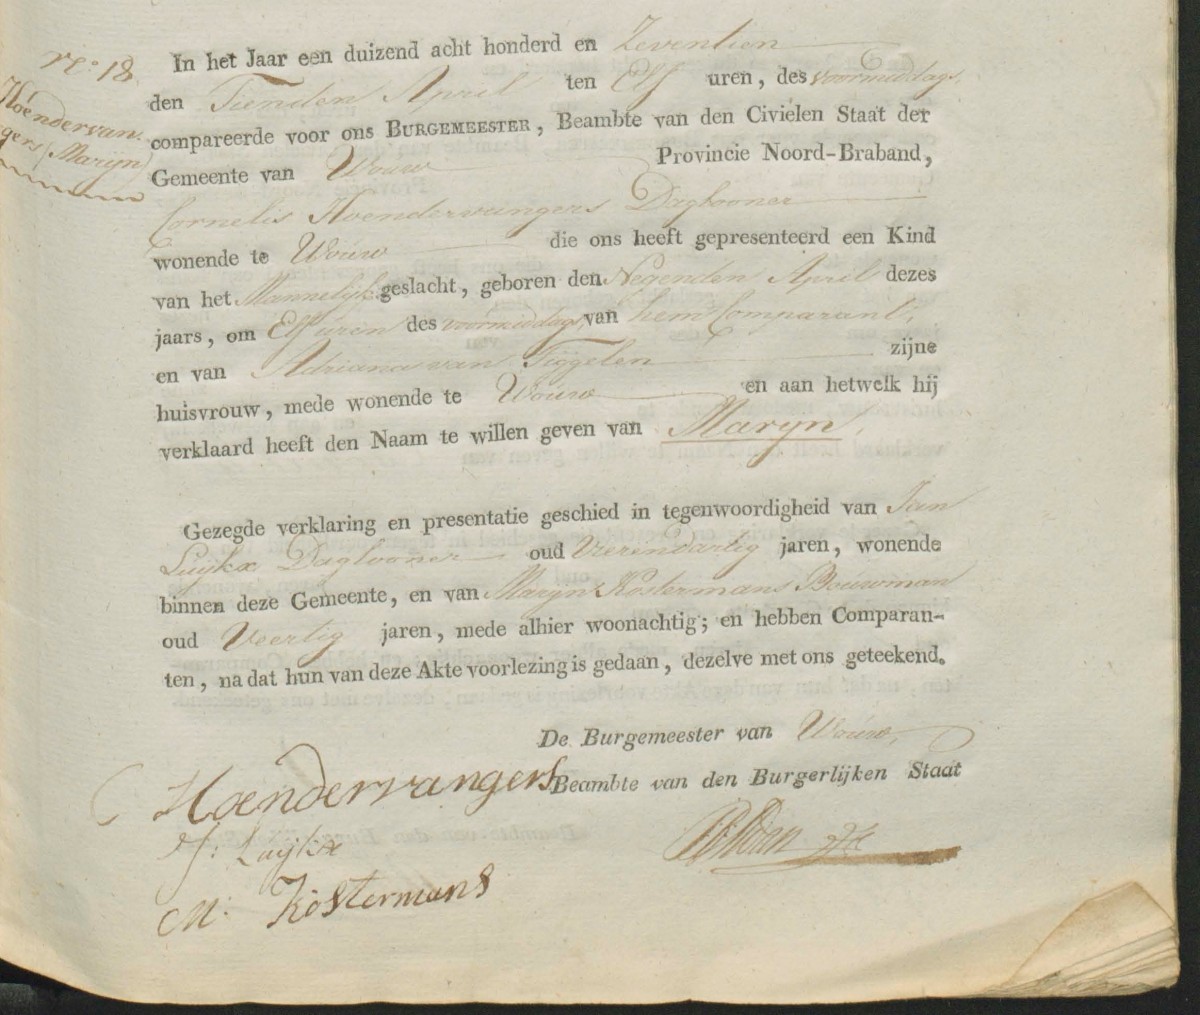 No. 18.
Hoendervan-
gers (Maryn)
In het Jaar een duizend acht honderd en Zeventien
den Tienden April ten Elf uren, des voormiddags
compareerde voor ons BURGEMEESTER, Beambte van den Civielen Staat der
Gemeente van Wouw Provincie Noord-Braband,
Cornelis Hoendervangers Daglooner
wonende te Wouw die ons heeft gepresenteerd een Kind
van het Mannelijk geslacht, geboren den Negenden April dezes
jaars, om Elf uren des voormiddags, van hem Comparant,
en van Adriana van Tiggelen zijne
huisvrouw, mede wonende te Wouw en aan hetwelk hij
verklaard heeft den Naam te willen geven van Maryn.
Gezegde verklaring en presentatie geschied in tegenwoordigheid van Jan
Luykx Daglooner oud Vierendartig jaren, wonende
binnen deze Gemeente, en van Maryn Kostermans Bouwman
oud Veertig jaren, mede alhier woonachtig; en hebben Comparan-
ten, na dat hun van deze Akte voorlezing is gedaan, dezelve met ons geteekend.
De Burgemeester van Wouw,
Beambte van den Burgerlijken Staat
C Hoendervangers
J: Luijkx
M: Kostermans